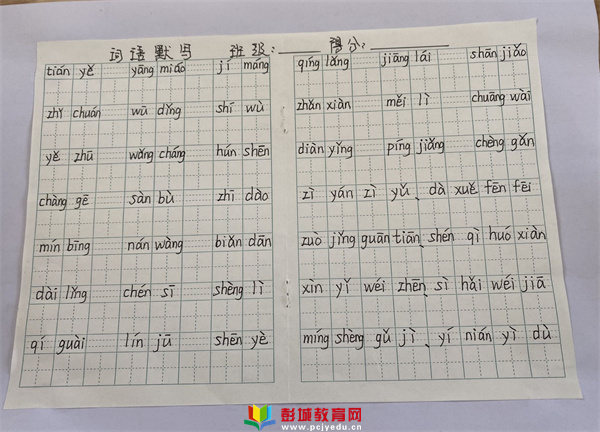 词语默写 班级:____ 得分:____
tián yě yāng miáo jí máng
zhǐ chuán wū dǐng shí wù
yě zhū wǎng cháng hún shēn
chàng gē sàn bù zhī dào
mín bīng nán wàng biǎn dān
dài lǐng chén sī shèng lì
qí guài lín jū shēn yè
qíng lǎng jiāng lái shān jiǎo
zhǎn xiàn měi lì chuāng wài
diàn yǐng píng jiǎng chèng gǎn
zì yán zì yǔ、dà xuě fēn fēi
zuò jǐng guān tiān、shén qì huó xiàn
xìn yǐ wéi zhēn、sì hǎi wéi jiā
míng shèng gǔ jì、yí nián yì dù
彭城教育网
www.pcjyedu.cn